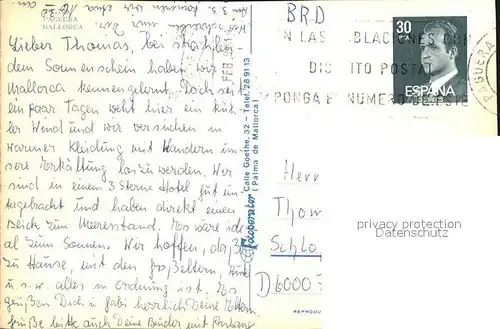 PAGUERA
MALLORCA
Lieber Thomas, bei strahlen-
dem Sonnenschein haben wir
Mallorca kennengelernt. Doch seit
ein paar Tagen weht hier ein küh-
ler Wind und wir versuchen in
warmer Kleidung mit Wandern un-
sere Erkältung loszuwerden. Wir
sind in einem 3 Sterne Hotel gut un-
tergebracht und haben direkt einen
Blick zum Meeresstrand. Es wäre ide-
al zum Sonnen. Wir hoffen, daß
zu Hause, mit den Großeltern,
u.s.w. alles in ordnung ist. Es
grüßen Dich in gabi herzlich Deine
grüße bitte auch Deine Brüder mit Anhang
Fotoperator Calle Goethe, 32 - Telef. 28 91 13
(Palma de Mallorca)
BRD
EN LAS
DIS ITO POSTAL
PONGA E NUMERO DE ESTE
FEB
PAGUERA
30
PTA
ESPAÑA
Herr
Thom
Schlo
D 6000
REPRODU
privacy protection
Datenschutz